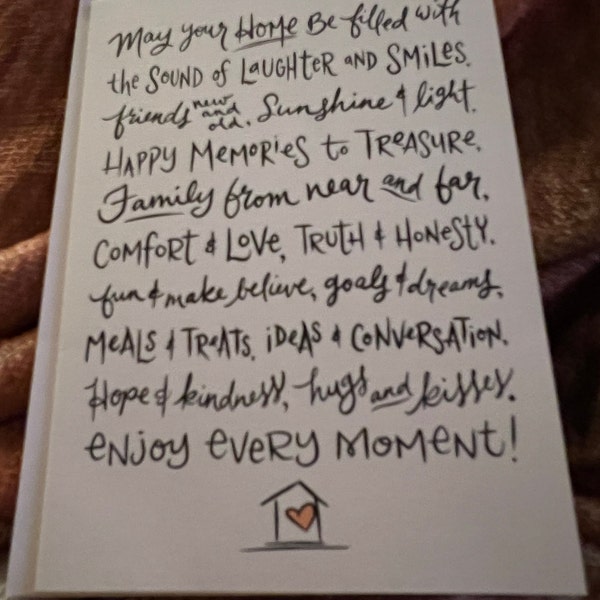 May your Home Be filled with
the SOUND of LAUGHTER AND SMiLES.
friends new and old. Sunshine & light.
HAPPY MeMORieS to TReASURe.
Family from near and far,
COMFORt & LOVe, TRUTH & HONeStY.
fun & make believe, goals & dreams,
MeALS & TReATS, iDeAS & CONVeRSATiON.
Hope & kindness, hugs and kisses.
eNJOY eVeRY MOMeNt!